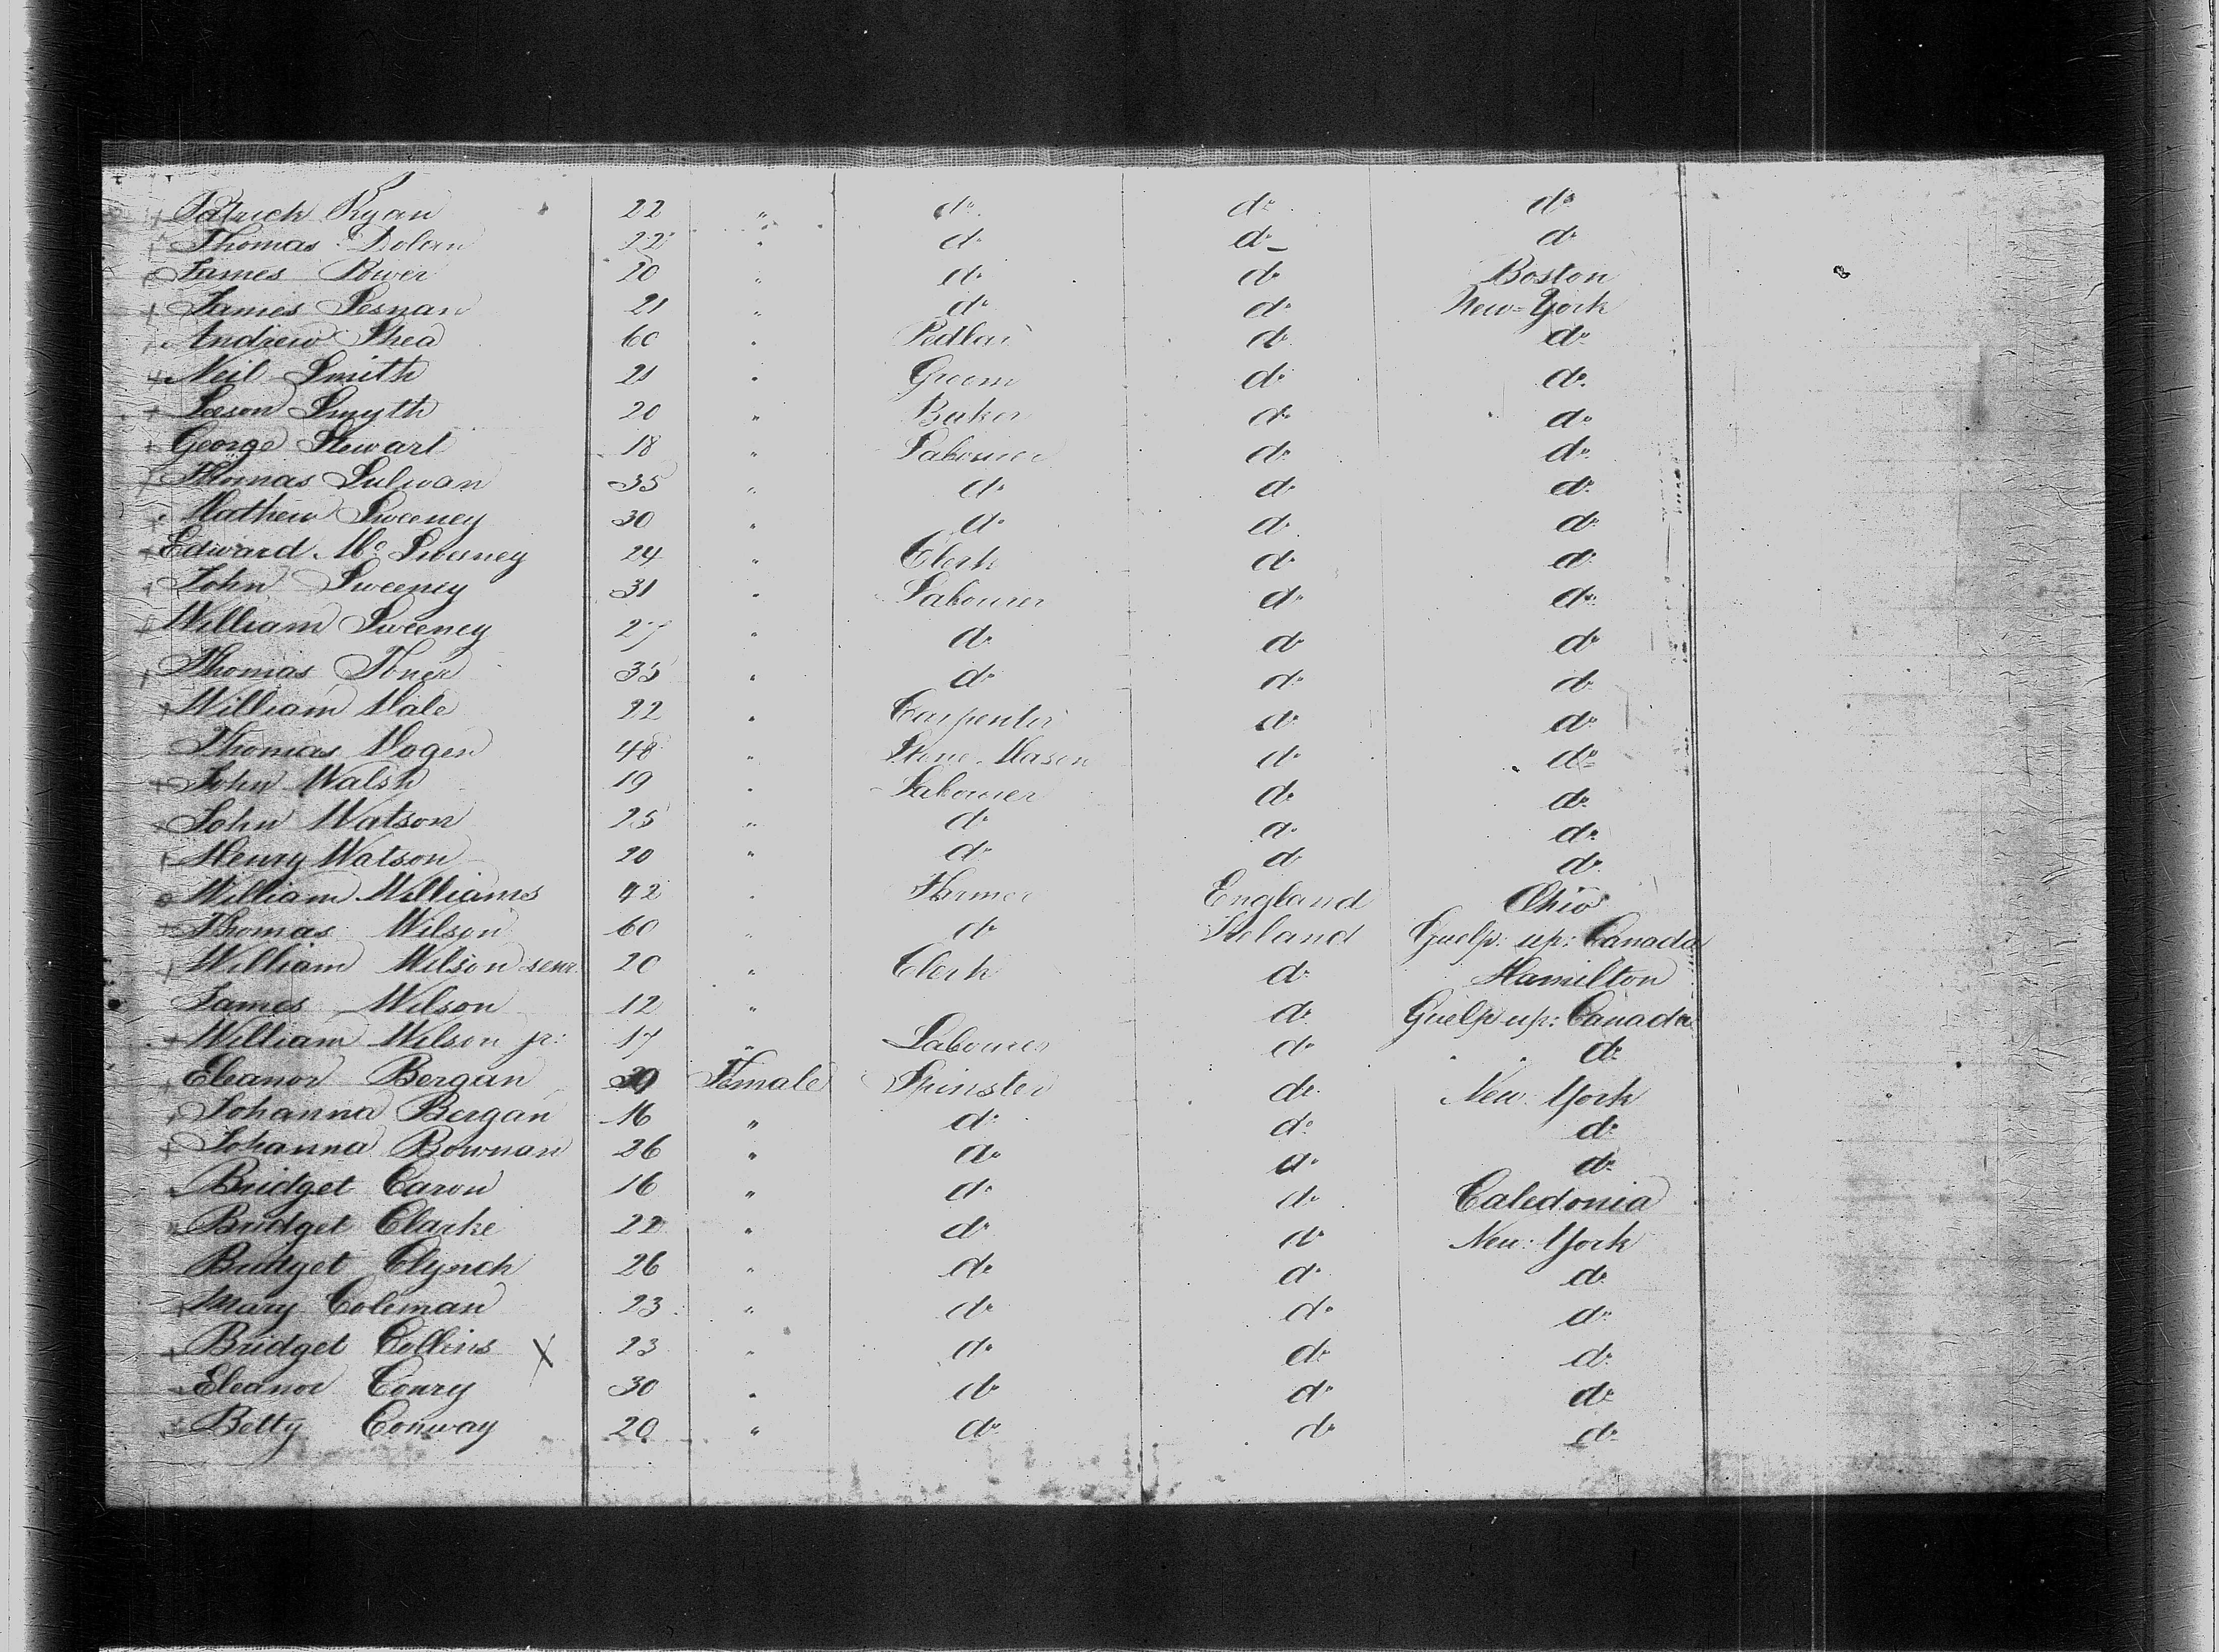 Patrick Ryan 22 " do do do
Thomas Dolan 22 " do do do
James Power 20 " do do Boston
James Sesnan 21 " do do New-York
Andrew Shea 60 " Pedlar do do
Neil Smith 21 " Groom do do
Leeson Smyth 20 " Baker do do
George Stewart 18 " Labourer do do
Thomas Sulivan 35 " do do do
Mathew Sweeney 30 " do do do
Edward Mc Sweeney 24 " Clerk do do
John Sweeney 31 " Labourer do do
William Sweeney 27 " do do do
Thomas Toner 35 " do do do
William Vale 22 " Carpenter do do
Thomas Vogen 48 " Stone Mason do do
John Walsh 19 " Labourer do do
John Watson 25 " do do do
Henry Watson 20 " do do do
William Williams 42 " Farmer England Ohio
Thomas Wilson 60 " do Ireland Guelp: up: Canada
William Wilson senr. 20 " Clerk do Hamilton
James Wilson 12 " do Guelp up: Canada
William Wilson jr: 17 " Labourer do do
Eleanor Bergan Female Spinster do New York
Johanna Bergan 16 " do do do
Johanna Bownan 26 " do do do
Bridget Caron 16 " do do Caledonia
Bridget Clarke 22 " do do New York
Bridget Clynch 26 " do do do
Mary Coleman 23 " do do do
Bridget Collins X 23 " do do do
Eleanor Conry 30 " do do do
Betty Conway 20 " do do do